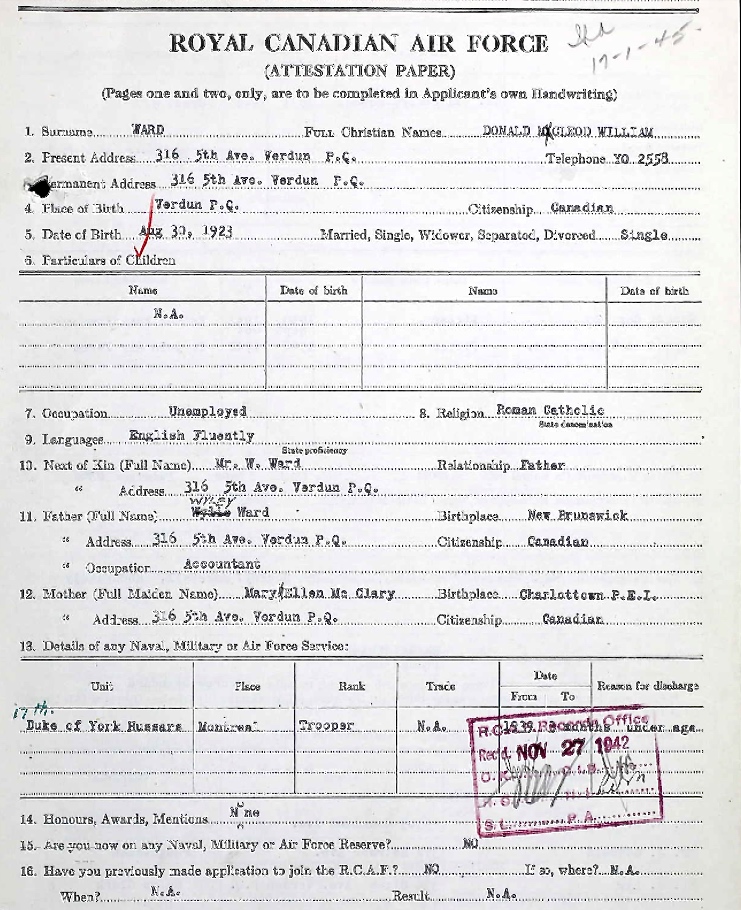 17-1-45
ROYAL CANADIAN AIR FORCE
(ATTESTATION PAPER)
(Pages one and two, only, are to be completed in Applicant's own Handwriting)
1. Surname WARD Full Christian Names DONALD McLEOD WILLIAM
2. Present Address 316 5th Ave. Verdun P.Q. Telephone YO 2558
Permanent Address 316 5th Ave. Verdun P.Q.
4. Place of Birth Verdun P.Q. Citizenship Canadian
5. Date of Birth Aug 30, 1923 Married, Single, Widower, Separated, Divorced Single
6. Particulars of Children
Name Date of birth Name Date of birth
N.A.
7. Occupation Unemployed 8. Religion Roman Catholic
State denomination
9. Languages English Fluently
State proficiency
10. Next of Kin (Full Name) Mr. W. Ward Relationship Father
" Address 316 5th Ave. Verdun P.Q.
WYLEY
11. Father (Full Name) Ward Birthplace New Brunswick
" Address 316 5th Ave. Verdun P.Q. Citizenship Canadian
" Occupation Accountant
12. Mother (Full Maiden Name) Mary Ellen Mc Clary Birthplace Charlottown P.E.I.
" Address 316 5th Ave. Verdun P.Q. Citizenship Canadian
13. Details of any Naval, Military or Air Force Service:
Unit Place Rank Trade Date From To Reason for discharge
17th.
Duke of York Hussars Montreal Trooper N.A. 1939. 3 months under age
Records Office
Rec'd. NOV 27 1942
P.A.
14. Honours, Awards, Mentions None
15. Are you now on any Naval, Military or Air Force Reserve? NO
16. Have you previously made application to join the R.C.A.F.? NO If so, where? N.A.
When? N.A. Result N.A.